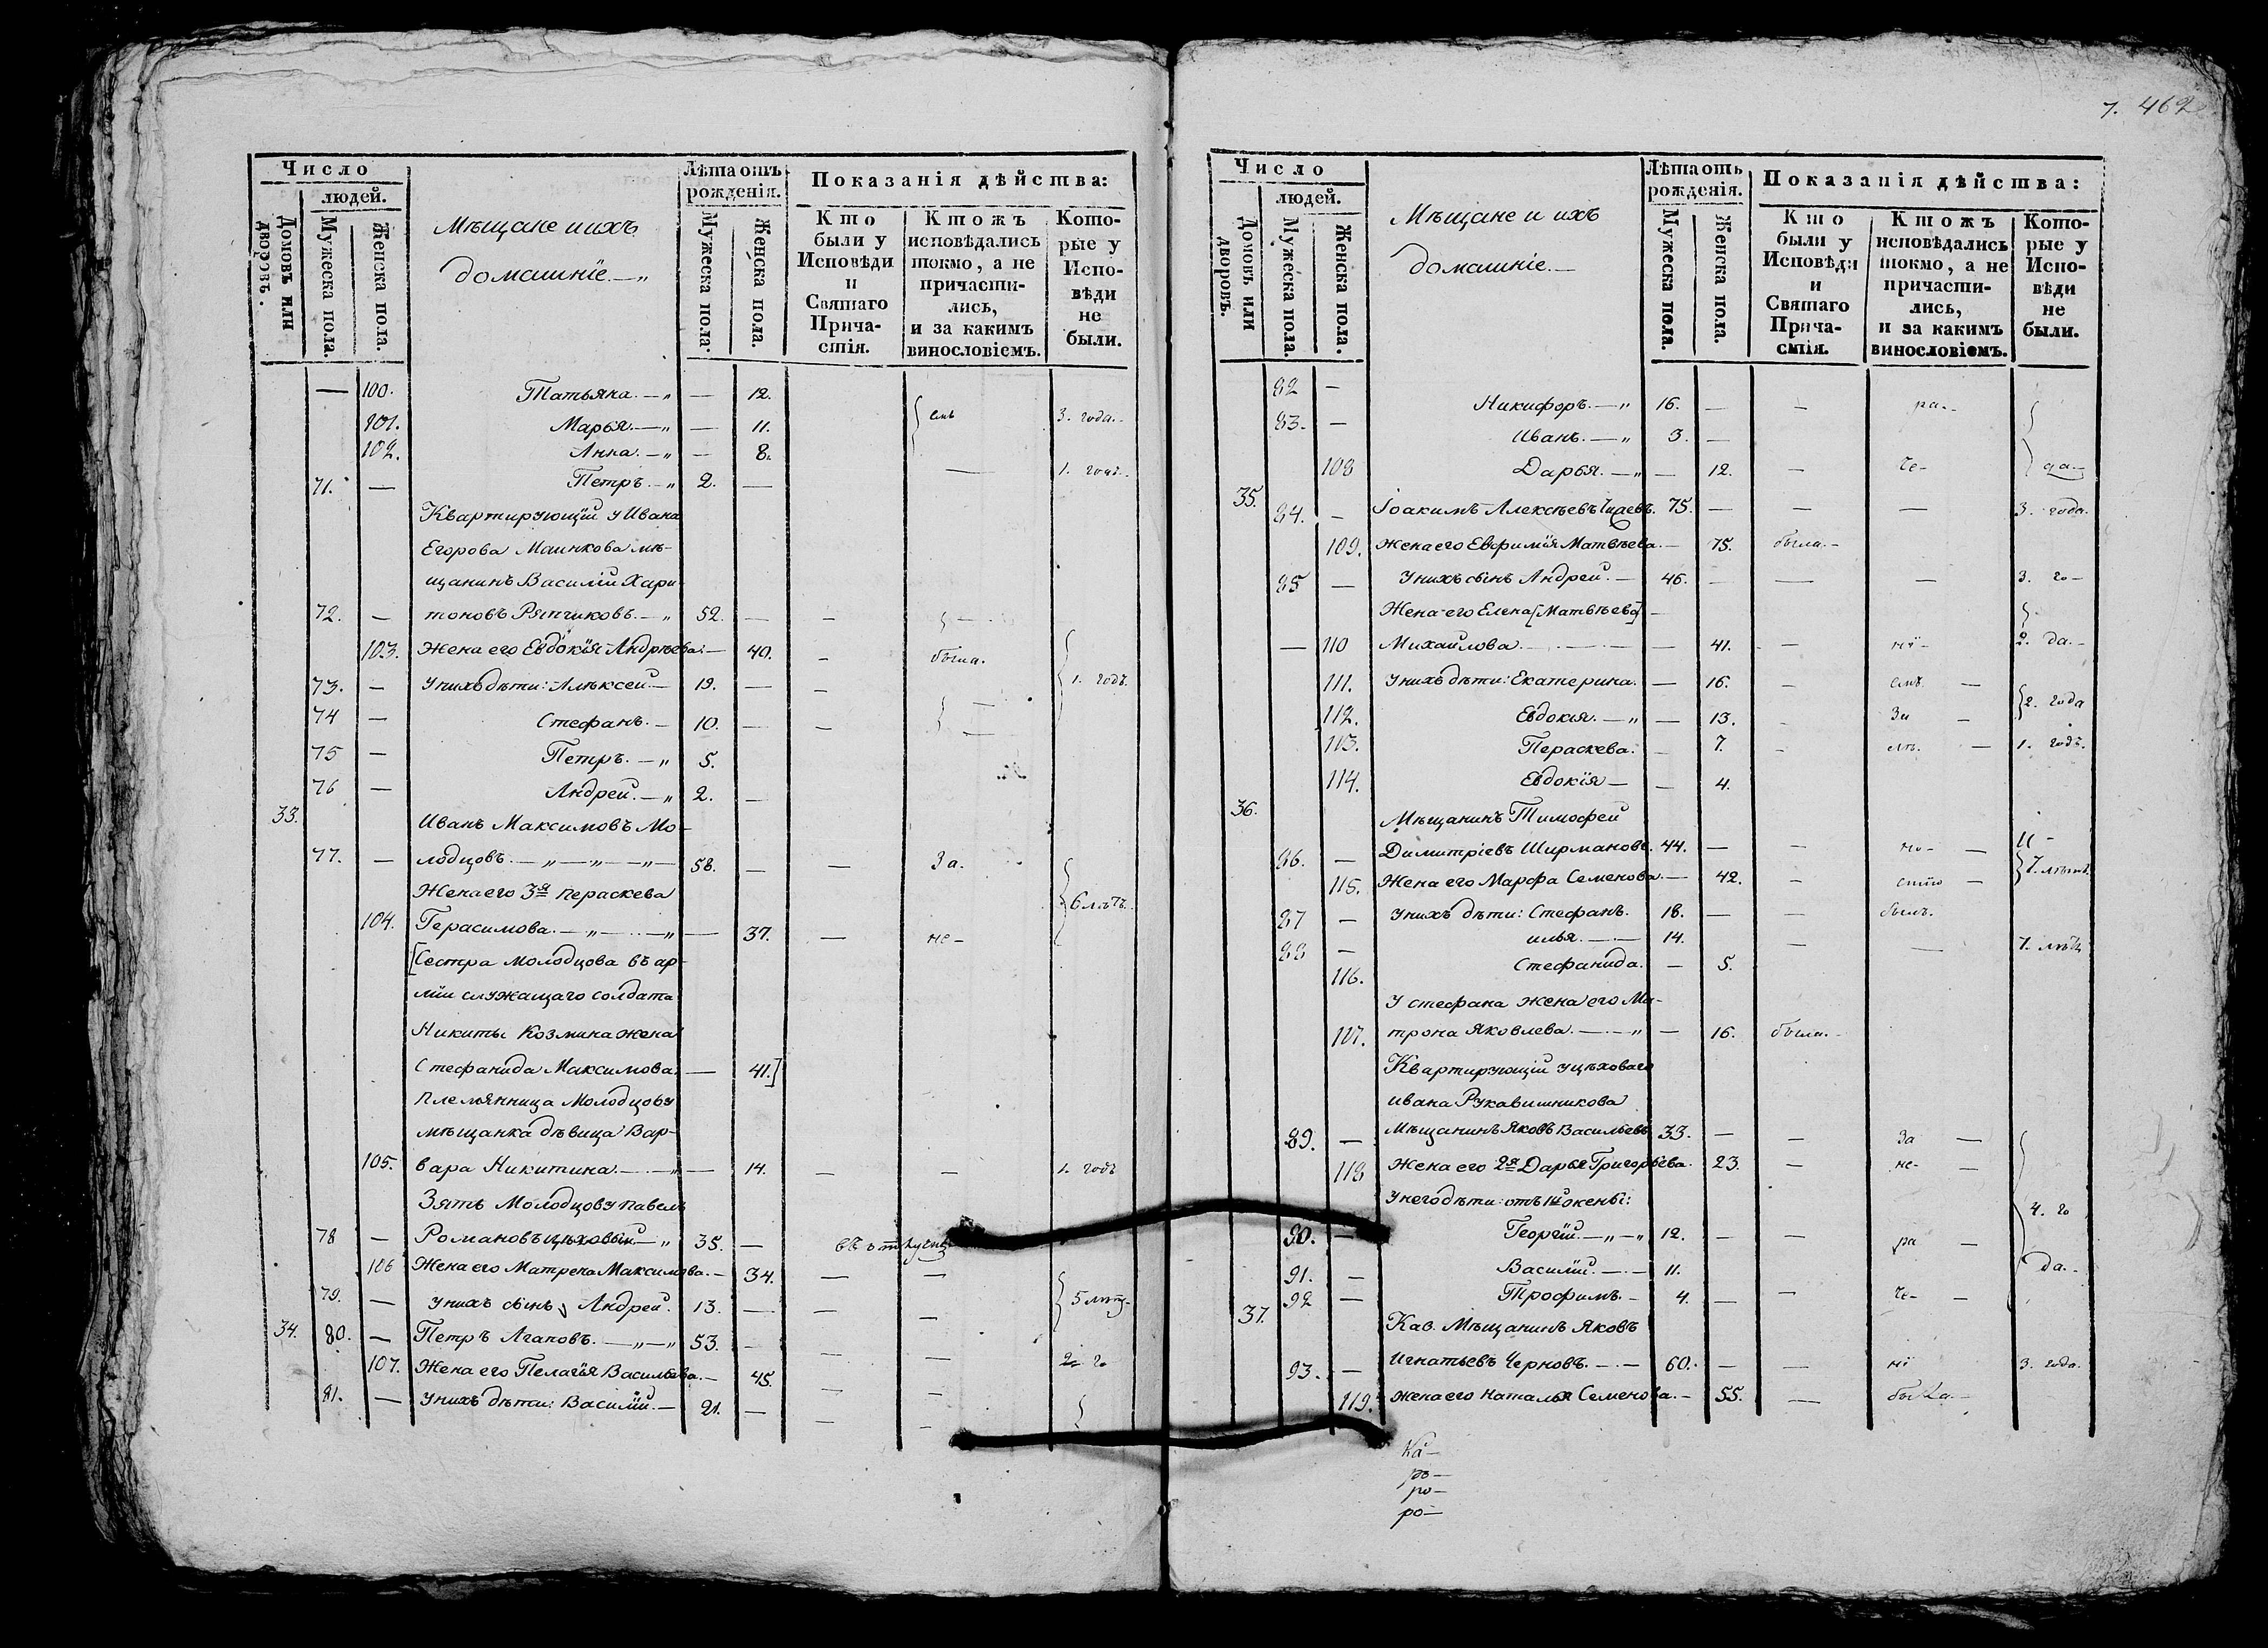 7. 462
Число
людей.
Домовъ или дворовъ.
Мужеска пола.
Женска пола.
Мѣщане и ихъ
домашнїе. — „
Лѣта отъ
рожденія.
Мужеска пола.
Женска пола.
Показанія дѣйства:
Кто
были у
Исповѣди
и
Святаго
Прича-
стія.
Ктожъ
исповѣдались
токмо, а не
причасти-
лись,
и за какимъ
винословіемъ.
Кото-
рые у
Испо-
вѣди
не
были.
— 100. Татьяна. — „ — 12.
101. Марья. — „ — 11. 3. года.
102. Анна. — „ — 8.
71. — Петръ. — „ 2. — — 1. годъ.
Квартирующїй у Ивана
Егорова Маинкова мѣ-
щанинъ Василїй Хари-
72. — тоновъ Ряпчиковъ. — „ 52. — —
103. Жена его Евдокїя Андрѣева. — 40. — была.
73. — У нихъ дѣти: Алѣксей. — 19. — — 1. годъ.
74 — Стефанъ. — 10. — —
75 — Петръ. — „ 5.
76 — Андрей. — „ 2. —
33. Иванъ Максимовъ Мо-
77. — лодцовъ. — „ — „ — „ — 58. — — За.
Жена его 3я Пераскева 6 лѣтъ.
104. Герасимова. — „ — „ — 37. — не-
[Сестра Молодцова въ ар-
мїи служащаго солдата
Никиты Козмина жена
Стефанида Максимова. — 41.]
Племянница Молодцову
мѣщанка дѣвица Вар-
105. вара Никитина. — „ — 14. — — 1. годъ
Зять Молодцову Павелъ
78 — Романовъ цѣховый. — „ 35. — въ отлучкѣ
106 Жена его Матрена Максимова. — 34. — —
79. — У нихъ сынъ Андрей. 13. — — — 5 лѣтъ.
34. 80. — Петръ Агаповъ. — „ — „ 53. — — —
107. Жена его Пелагїя Васильева. — 45. — — 2 го
81. — У нихъ дѣти: Василїй. — 21. — — —
Число
людей.
Домовъ или дворовъ.
Мужеска пола.
Женска пола.
Мѣщане и ихъ
домашнїе. —
Лѣта отъ
рожденія.
Мужеска пола.
Женска пола.
Показанія дѣйства:
Кто
были у
Исповѣди
и
Святаго
Прича-
стія.
Ктожъ
исповѣдались
токмо, а не
причасти-
лись,
и за какимъ
винословіемъ.
Кото-
рые у
Испо-
вѣди
не
были.
82 — Никифоръ. — „ 16. — — ра-
83. — Иванъ. — „ 3. —
108 Дарья. — „ — 12. — че- да. —
35. 84. — Іоакимъ Алексѣевъ 75. — — — 3. года.
109. Жена его Евфимїя Матвѣева. — 75. была. —
85 — У нихъ сынъ Андрей. — 46. — — — 3. го-
Жена его Елена [Матвѣева] —
— 110 Михайлова. — — — 41. — нї- 2. да. —
111. У нихъ дѣти: Екатерина. — 16. — емъ. — 2. года
112. Евдокїя. — „ — 13. — За —
113. Пераскева. — 7. — — 1. годъ.
114. Евдокїя — — 4.
36. Мѣщанинъ Тимофей
86. — Димитрїевъ Ширмановъ. 44. — — —
115. Жена его Марфа Семенова. — 42. — — 7. лѣтъ.
87 — У нихъ дѣти: Стефанъ. 18. — — былъ.
88 — Илья. — — 14. — — 7. лѣтъ
116. Стефанида. — 5.
У Стефана жена его Ма-
117. трона Яковлева. — „ — 16. была. —
Квартирующїй у цѣховаго
Ивана Рукавишникова
89. — Мѣщанинъ Яковъ Васильевъ 33. — — За —
118 Жена его 2я Дарья Григорьева. 23. — не- —
У него дѣти: отъ 1й жены:
90. — Георгїй. — „ — „ 12. — — ра — 4. го
91. — Василїй. — — 11. да. —
92 — Трофимъ. — 4. — — че- —
37. Кав. Мѣщанинъ Яковъ
93. — Игнатьевъ Черновъ. — — 60. — — нї 3. года.
119. Жена его Наталья Семенова. — 55. — была. —
Ка-
ро-
ро-
ро-